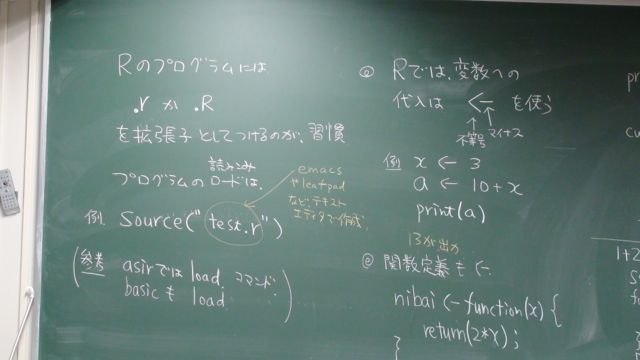 Rのプログラムには
.r か .R
を拡張子としてつけるのが、習慣
プログラムの
読みこみ
ロードは、
emacs
やleafpad
など、テキスト
エディタで作成
例. Source("test.r")
(参考 asirでは load コマンド.
basicも load )
@ Rでは、変数への
代入は <- を使う
不等号 マイナス
例 x <- 3
a <- 10+x
print(a)
13が出力
@ 関数定義も <-
nibai <- function(x) {
return(2*x);
}